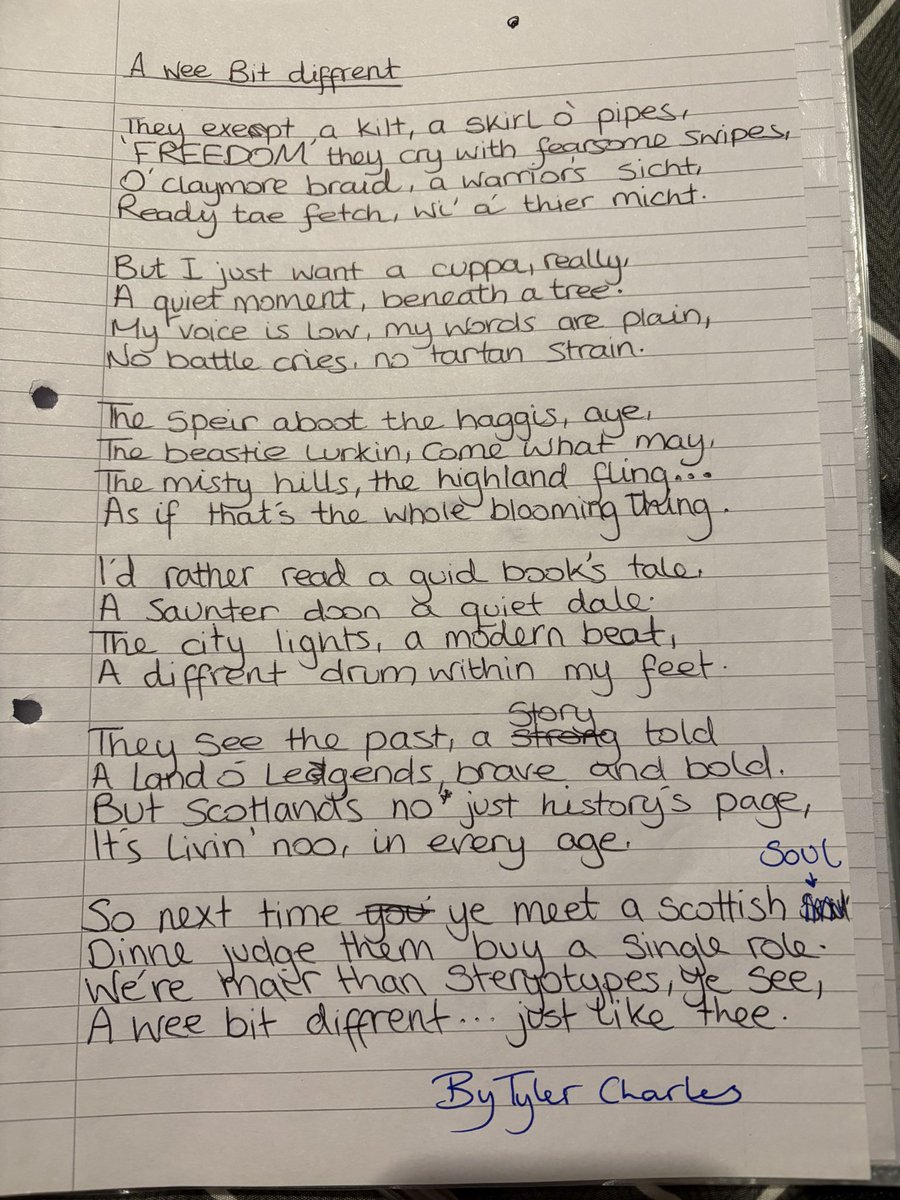 A wee Bit diffrent
They exespt a kilt, a skirl o' pipes,
'FREEDOM' they cry with fearsome swipes,
O' claymore braid, a warrior's sicht,
Ready tae fetch, wi' a' thier micht.
But I just want a cuppa, really,
A quiet moment, beneath a tree.
My voice is low, my words are plain,
No battle cries, no tartan strain.
The speir aboot the haggis, aye,
The beastie lurkin, come what may,
The misty hills, the highland fling...
As if that's the whole blooming thing.
I'd rather read a guid book's tale,
A saunter doon a quiet dale.
The city lights, a modern beat,
A diffrent drum within my feet.
They see the past, a story told
A land o' Ledgends, brave and bold.
But Scotland's no' just history's page,
It's livin' noo, in every age.
So next time ye meet a scottish soul
Dinne judge them buy a single role.
We're mair than stergotypes, ye see,
A wee bit diffrent... just like thee.
By Tyler Charles